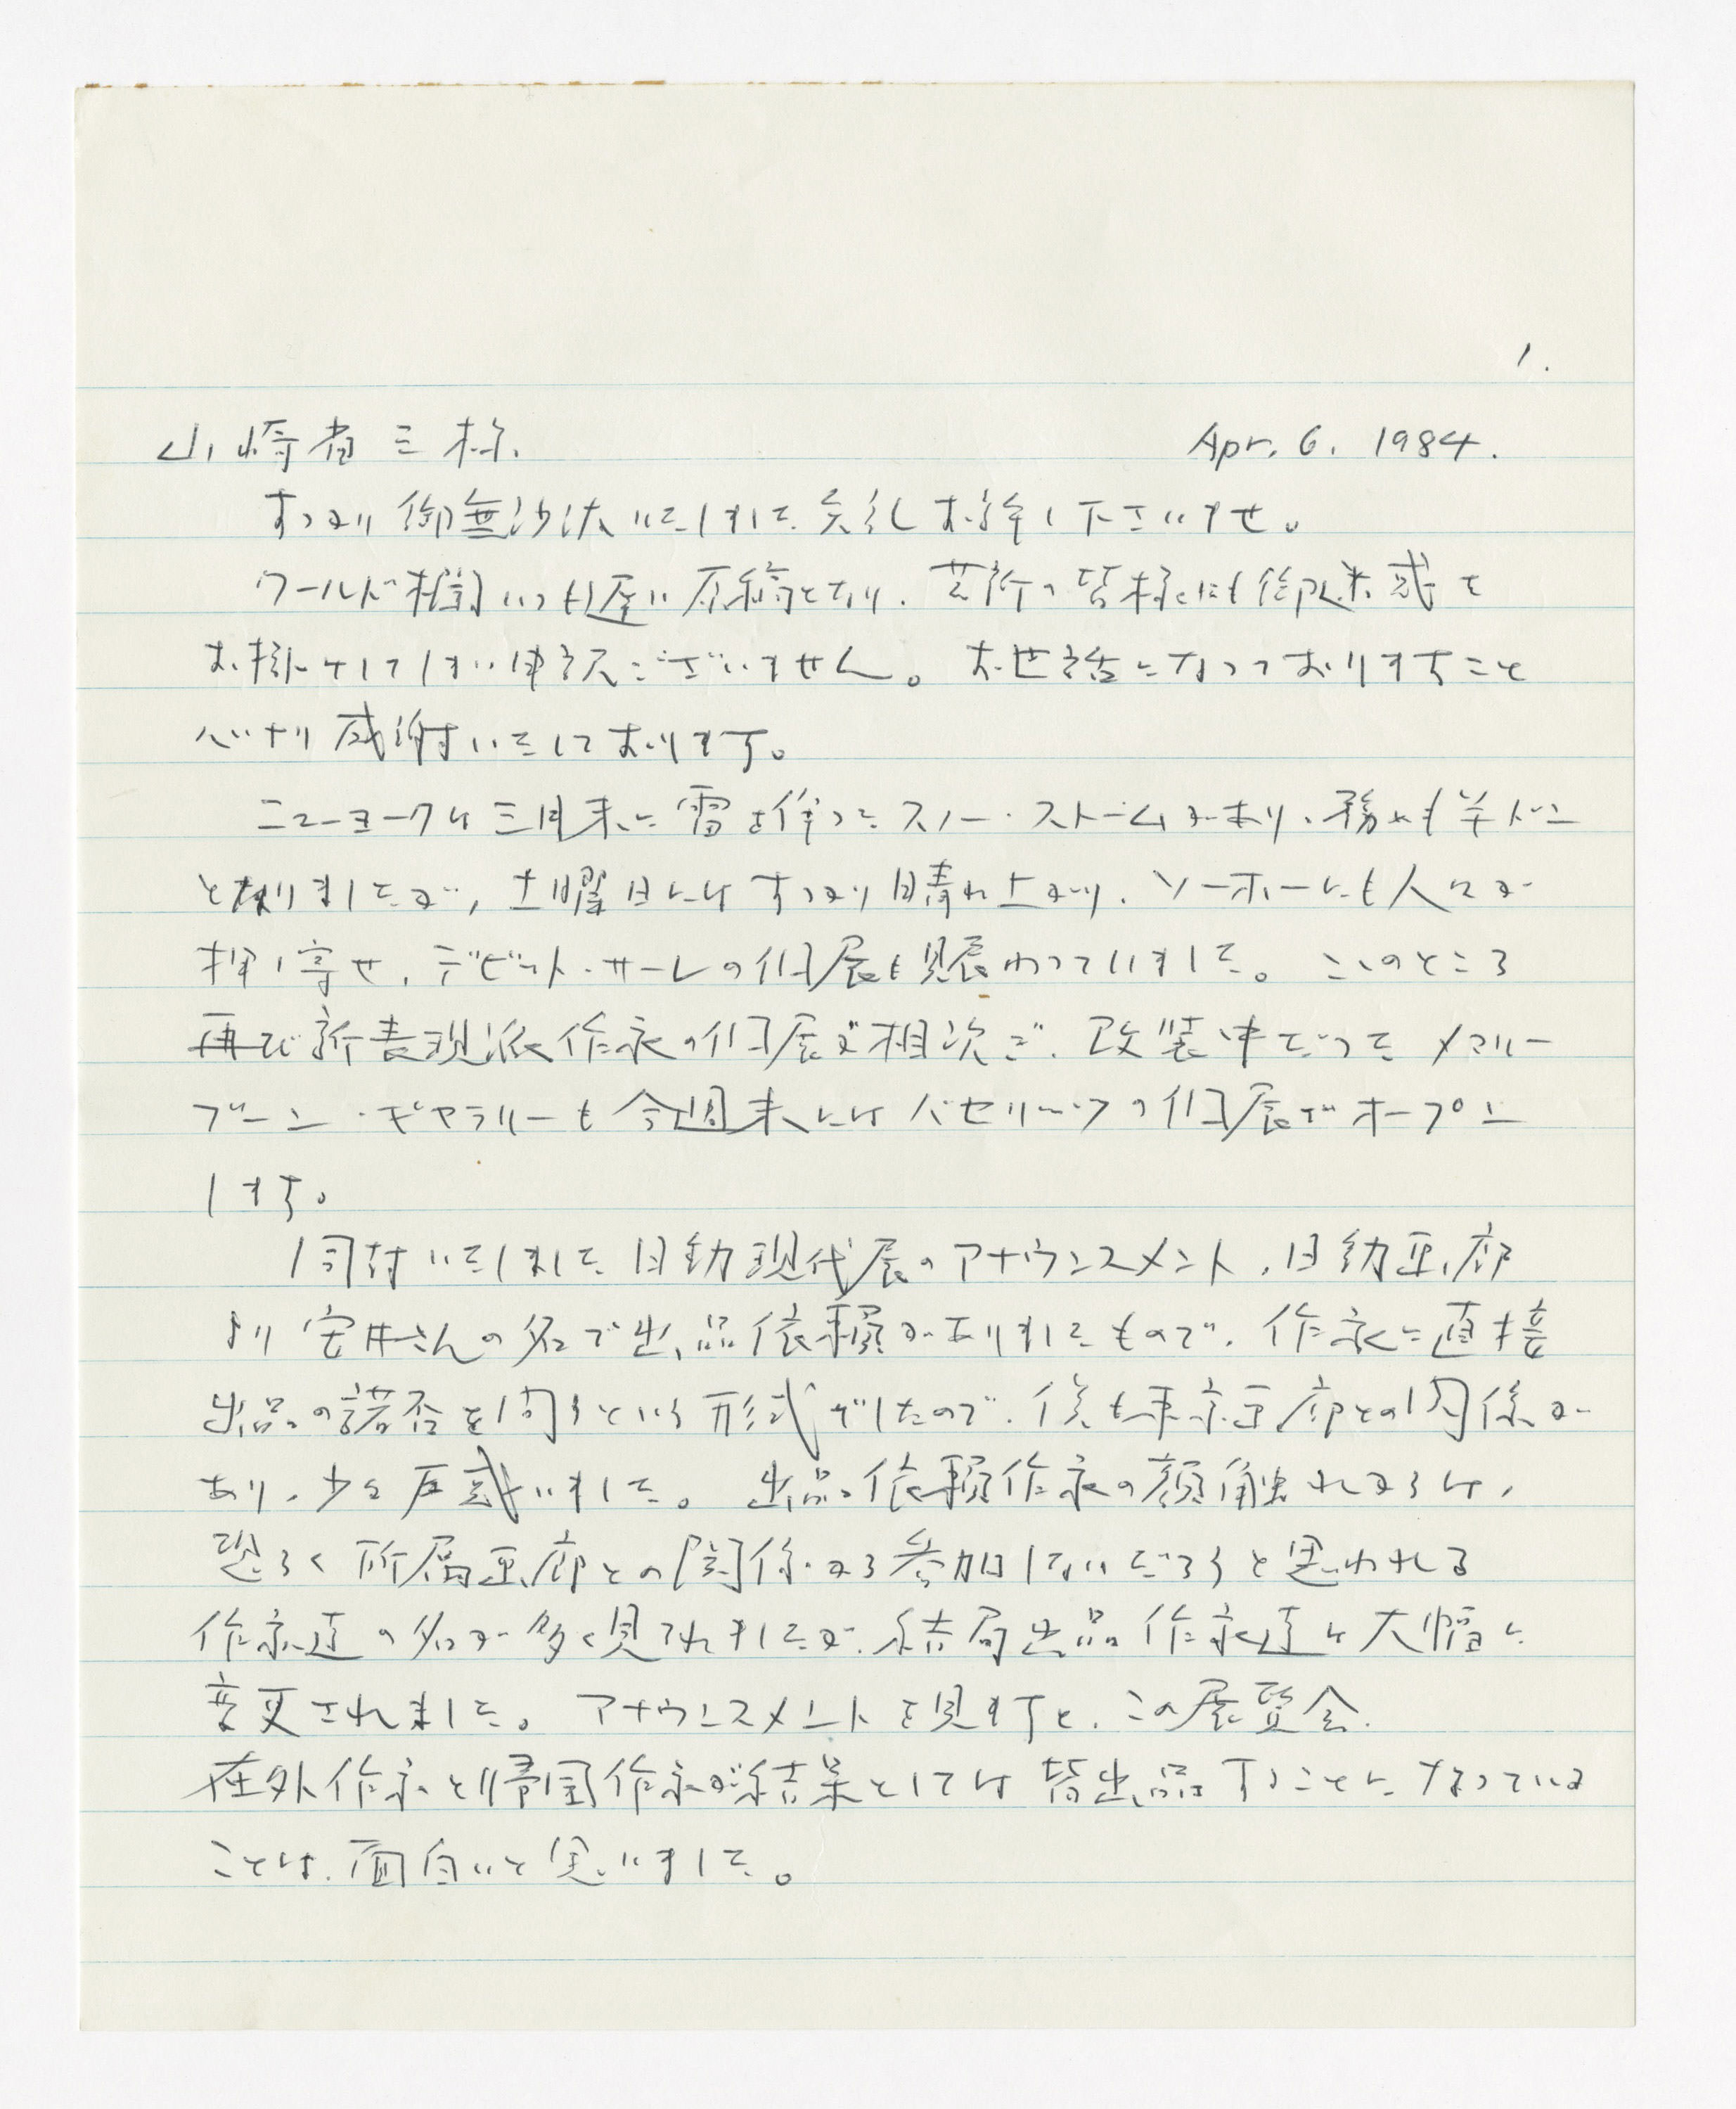 1.
山崎省三様. Apr. 6. 1984.
すっかり御無沙汰いたしました失礼お許し下さいませ。
ワールド欄いつも遅い原稿となり、芸新の皆様にも御迷惑を
お掛けしてしまい申訳ございません。お世話になっておりますこと
心より感謝いたしております。
ニューヨークは三月末に雷を伴ったスノー・ストームがあり、
となりましたが, 土曜日にはすっかり晴れ上がり、ソーホーにも人々が
押し寄せ、デビット・サーレの個展も賑わっていました。ここのところ
再び新表現派作家の個展が相次ぎ、改装中だったメアリー
ブーン・ギャラリーも今週末にはバセリッツの個展でオープン
します。
同封いたしました日動現代展のアナウンスメント、日動画廊
より 井さんの名で出品依頼がありましたもので、作家に直接
出品の諾否を問うという形式でしたので、僕も東京画廊との関係が
あり、少々 いました。出品依頼作家の顔触れからは、
恐らく所属画廊との関係から参加しないだろうと思われる
作家達の名が多く見られましたが、結局出品作家達は大幅に
変更されました。アナウンスメントを見ますと、この展覧会、
在外作家と帰国作家が結果としては皆出品することになっている
ことは、面白いと思いました。